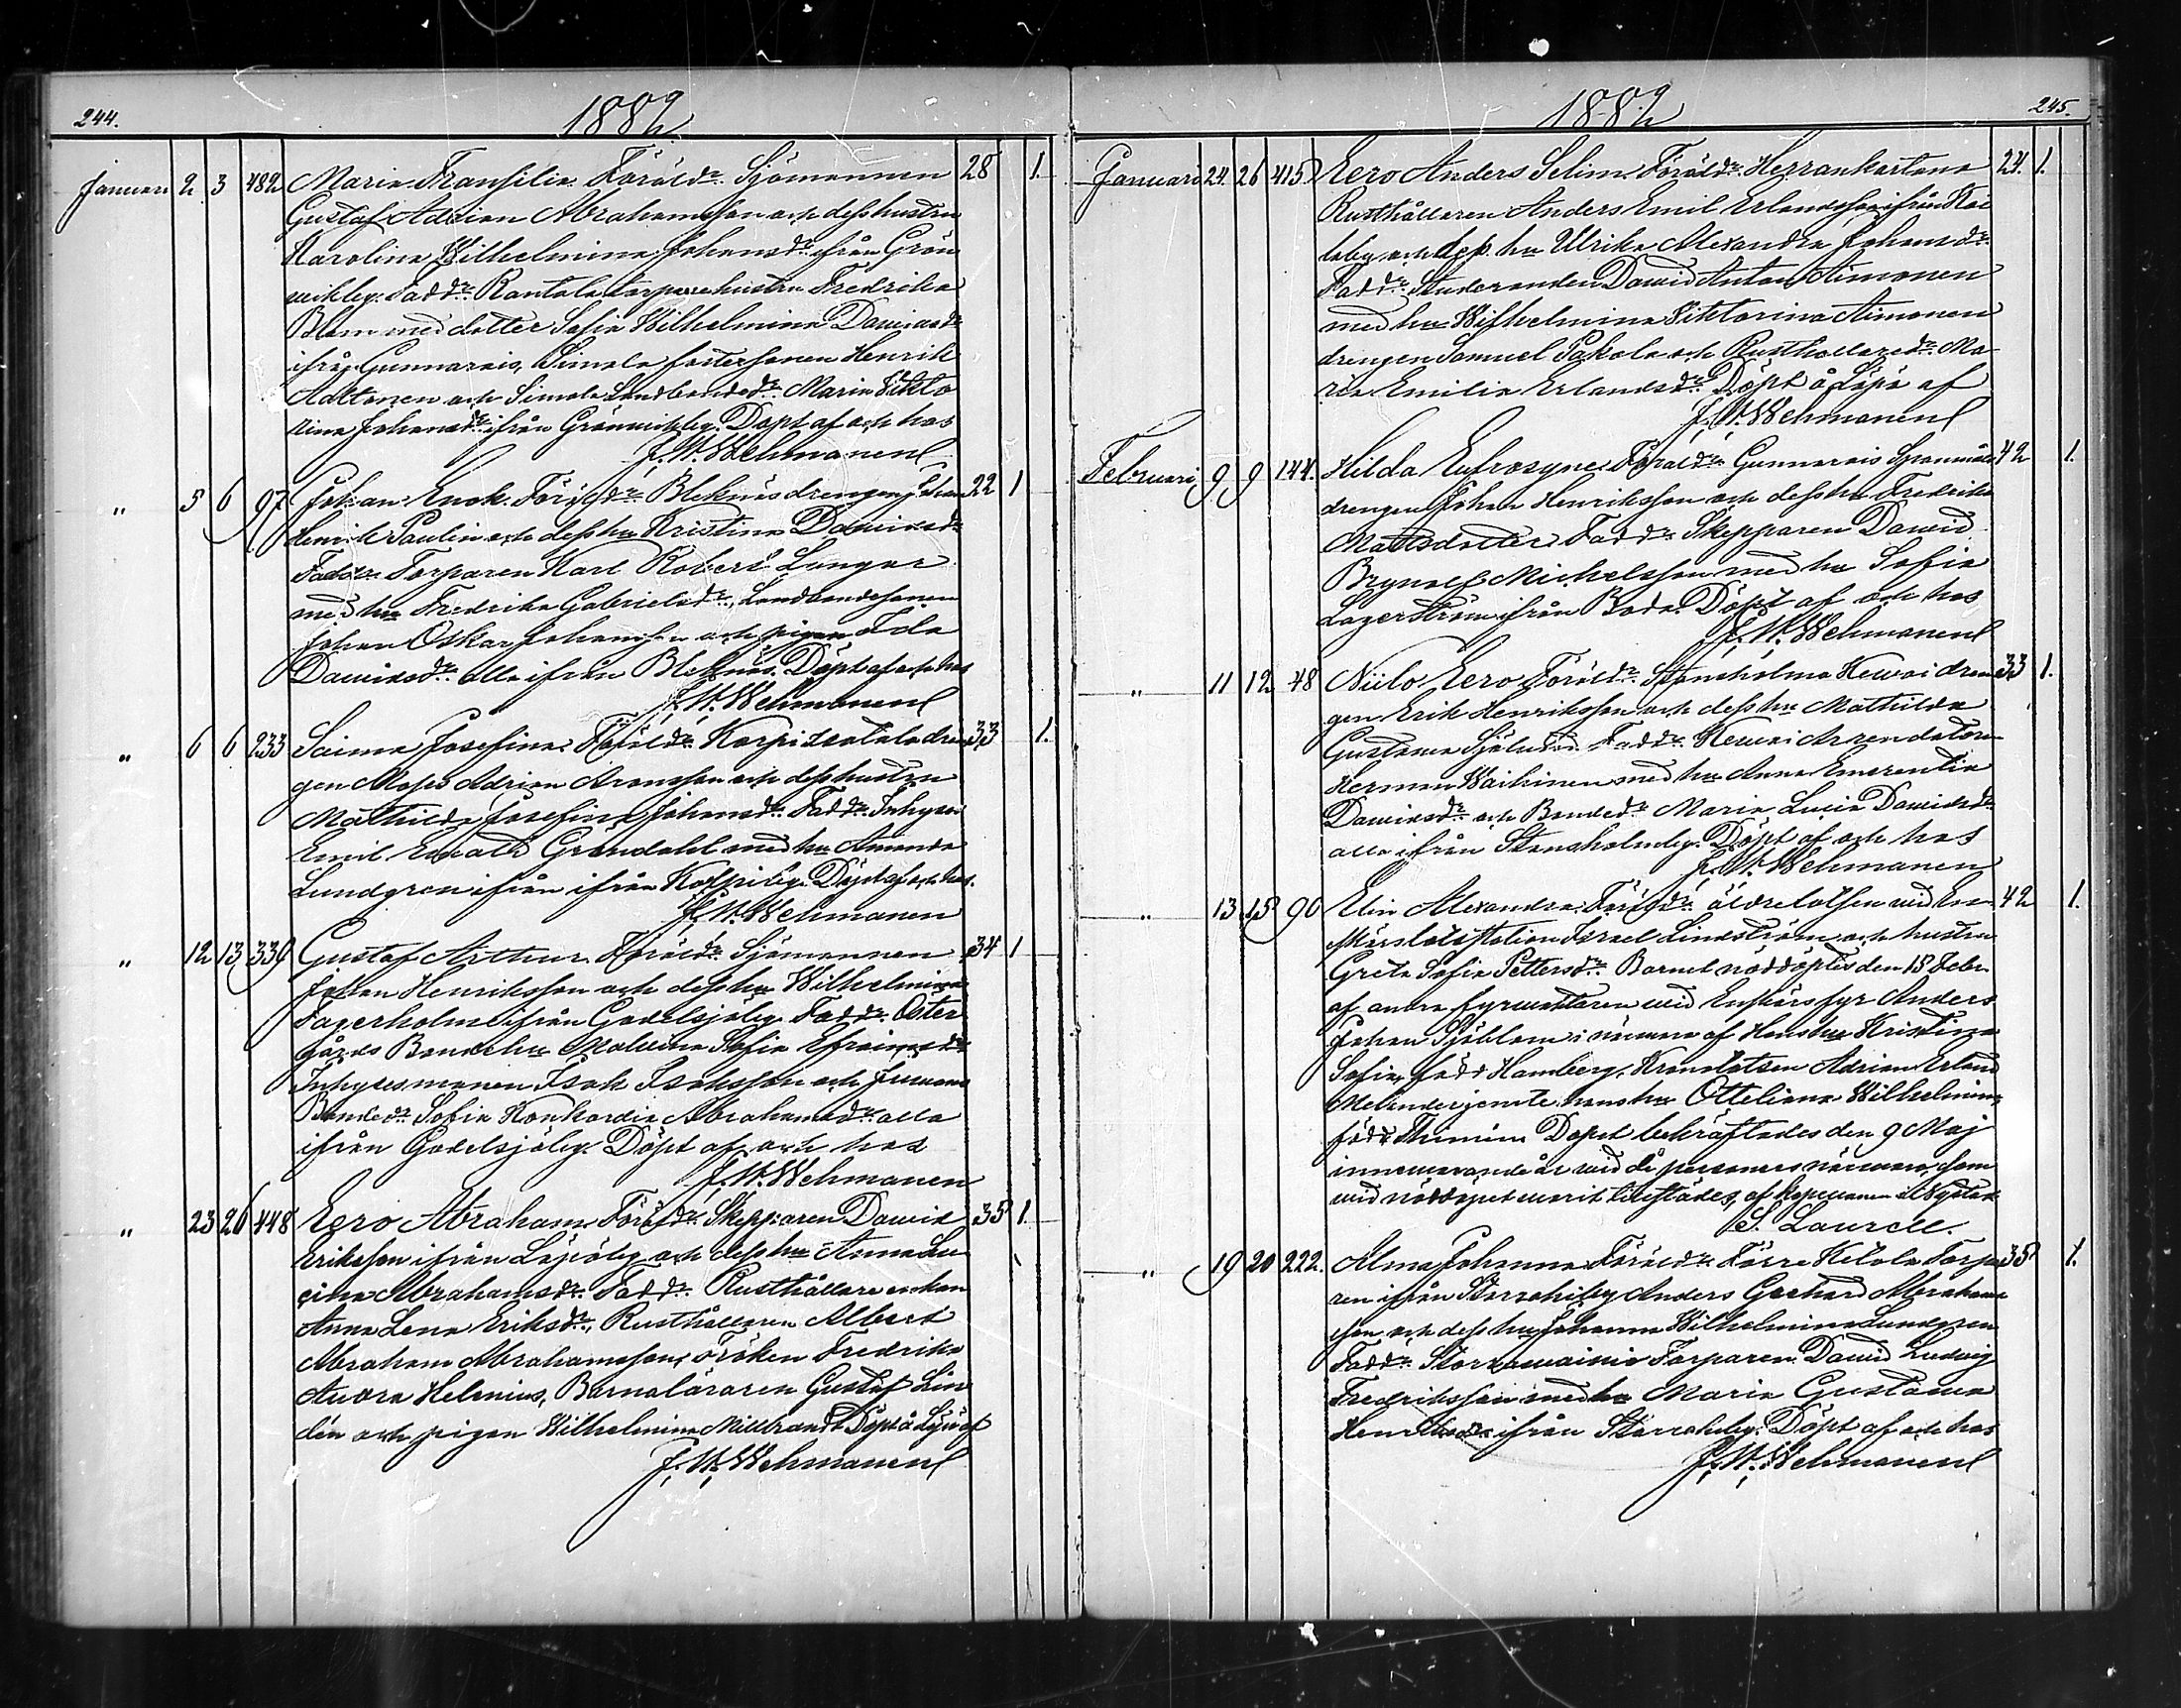 244.
1882
Januari 2 3 482 Maria Transilia Föräldr: Sjömannen 28 1.
Gustaf Adrian Abrahamsson och dess hustru
Karolina Wilhelmina Johansdr ifrån Grön
wikby. Faddr: Rantala torparehustru Fredrika
Blom med dotter Sofia Wilhelmina Davidsdr
ifrån Gunnarais, Simola fostersonen Henrik
Aaltonen och Simola Landbondedr Maria Wikto
rina Johansdr ifrån Grönwikby. Döpt af och hos
J. W. Wehmanen
" 5 6 97 Johan Enok. Föräldr: Bleknäs drengen Johan 22 1
Henrik Paulin och dess hu Kristina Davidsdr
Faddr: Torparen Karl Robert
med hu Fredrika Gabrielsdr, Landbondesonen
Johan Oskar Johansson och pigan Ida
Davidsdr alla ifrån Bleknäs. Döpt af och hos
J. W. Wehmanen
" 6 6 233 Saima Josefina. Föräldr: dren 33 1.
gen Moses Adrian Aronsson och dess hustru
Mathilda Josefina Johansdr. Faddr: Inhyses
Emil Grandahl med hu Amanda
Lundgren ifrån ifrån Korpiby. Döpt af och hos.
J. W. Wehmanen
" 12 13 339 Gustaf Arthur. Föräldr: Sjömannen 34 1
Johan Henriksson och dess hu Wilhelmina
Fagerholm ifrån Godelsjöby. Faddr: Öster
gårds Bondehu Malvina Sofia Efraimsdr
Inhysesmannen Isak Isaksson och
Bondedr Sofia Konkordia Abrahamsdr alla
ifrån Godelsjöby. Döpt af och hos
J. W. Wehmanen
" 23 26 448 Eero Abraham. Föräldr: Skepparen David 35 1.
Eriksson ifrån Lypöby och dess hu Anna Lu
cina Abrahamsdr. Faddr: Rusthållare enkan
Anna Lena Eriksdr, Rusthållaren Albert
Abraham Abrahamsson, Fröken Fredrika
Aurora Helenius, Barnaläraren Gustaf Lin
dén och pigan Wilhelmina Döpt å af
J. W. Wehmanen
1882
245.
Januari 24. 26 415 Eero Anders Selim. Föräldr: Herrankartano 24. 1.
Rusthållaren Anders Emil Erlandsson ifrån
laby och dess hu Ulrika Alexandra Johansdr.
Faddr: Studeranden David Anton Aimonen
med hu Wilhelmina Viktorina Aimonen
drengen Samuel Pakola och Rusthållaredr Ma
ria Emilia Erlandsdr. Döpt å af
J. W. Wehmanen
Februari 9 9 144. Hilda Eufrosyne. Föräldr: Gunnarais 42 1.
drengen Johan Henriksson och dess hu Fredrika
Mattsdotter. Faddr: Skepparen David
Brynolf Michelsson med hu Sofia
Lagerström ifrån Döpt af och hos
J. W. Wehmanen
" 11 12 48 Niilo Eero. Föräldr: Stensholma dren 33 1.
gen Erik Henriksson och dess hu Mathilda
Gustava Faddr: Arrendatorn
Herman med hu Anna Emerentia
Davidsdr och Bondedr Maria Lucia Davidsdr
alla ifrån Stensholmby. Döpt af och hos
J. W. Wehmanen
" 13 15 90 Elin Alexandra. Föräldr: äldre lotsen vid En 42 1.
skärs lotsstation Israel Lindström och hustru
Greta Sofia Pettersdr. Barnet nöddöptes den 15 Febr.
af andra fyrmästaren vid Enskärs fyr Anders
Johan Sjöblom i närvaro af Hans hu Kristina
Sofia, född Hamberg, Kronolotsen Adrian Erland
Melander jemte hans hu Otteliana Wilhelmina
född Dopet bekräftades den 9 Maj
innevarande år vid de personers närvaro, som
vid nöddopet varit tillstädes, af kapellanen i Nystad
S. Laurell.
" 19 20 222. Alma Johanna. Föräldr: Ketola Torpa 35 1.
ren ifrån Anders Gerhard Abrahams
son och dess hu Johanna Wilhelmina Lundgren
Faddr: Torparen David Ludvig
Fredriksson med hu Maria Gustava
Henriksdr ifrån Döpt af och hos
J. W. Wehmanen